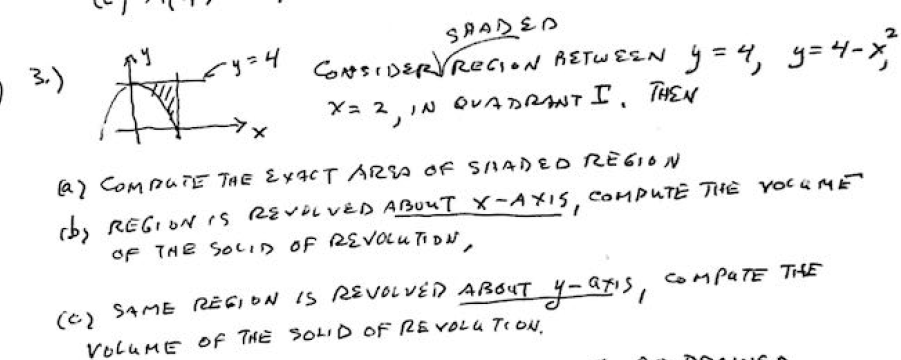 3.) y y = 4 x CONSIDER SHADED REGION BETWEEN y = 4, y = 4 - x²,
x = 2, IN QUADRANT I. THEN
(a) COMPUTE THE EXACT AREA OF SHADED REGION
(b) REGION IS REVOLVED ABOUT X-AXIS, COMPUTE THE VOLUME
OF THE SOLID OF REVOLUTION,
(c) SAME REGION IS REVOLVED ABOUT y-axis, COMPUTE THE
VOLUME OF THE SOLID OF REVOLUTION.